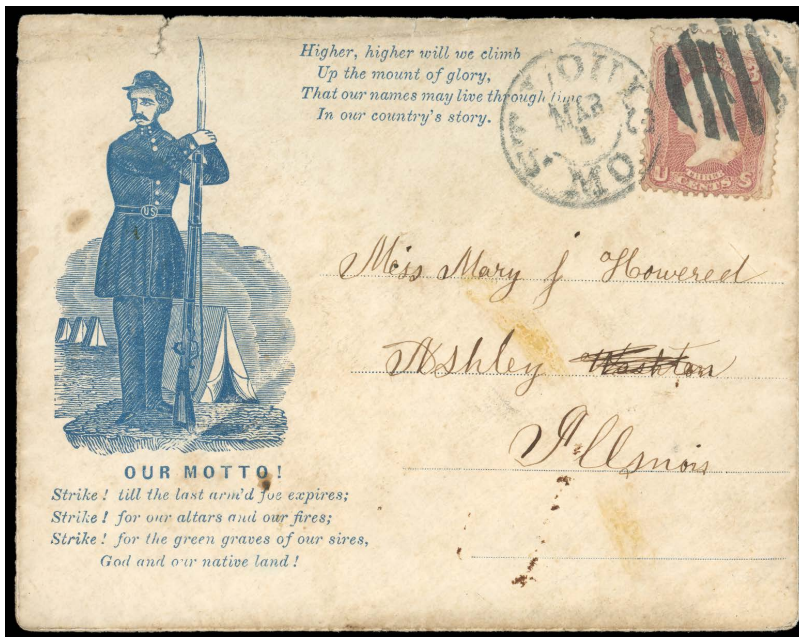 Higher, higher will we climb
Up the mount of glory,
That our names may live through time
In our country's story.
MAR
1
U CENTS S
US
Miss Mary J Howered
Ashley
Illsnois
OUR MOTTO!
Strike! till the last arm'd foe expires;
Strike! for our altars and our fires;
Strike! for the green graves of our sires,
God and our native land!